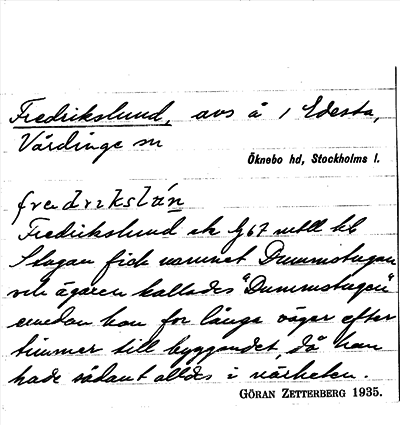 Fredrikslund, avs å 1 Edesta,
Vårdinge sn
Öknebo hd, Stockholms l.
fredrikslún
Fredrikslund ek
Stugan fick namnet Dummstugan
och ägaren kallades "Dummstugen"
emedan han for långa vägar efter
timmer till byggandet, då han
hade sådant alldes i närheten.
GÖRAN ZETTERBERG 1935.